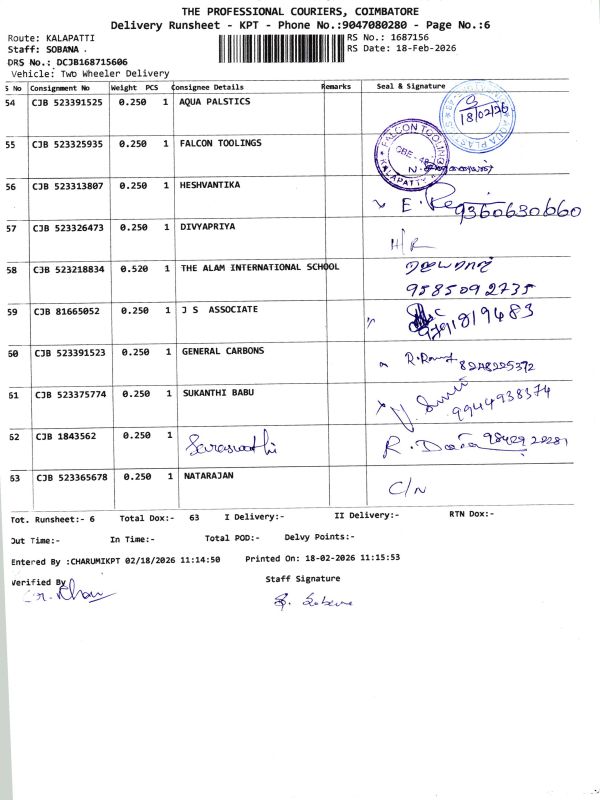 THE PROFESSIONAL COURIERS, COIMBATORE
Delivery Runsheet - KPT - Phone No.:9047080280 - Page No.:6
Route: KALAPATTI
RS No.: 1687156
Staff: SOBANA .
RS Date: 18-Feb-2026
DRS No.: DCJB168715606
Vehicle: Two Wheeler Delivery
S No Consignment No Weight PCS Consignee Details Remarks Seal & Signature
54 CJB 523391525 0.250 1 AQUA PALSTICS 18/02/26
55 CJB 523325935 0.250 1 FALCON TOOLINGS FALCON TOOLING CBE - 48 KALAPATTY
56 CJB 523313807 0.250 1 HESHVANTIKA E. 9360630660
57 CJB 523326473 0.250 1 DIVYAPRIYA H/R
58 CJB 523218834 0.520 1 THE ALAM INTERNATIONAL SCHOOL 9585092735
59 CJB 81665052 0.250 1 J S ASSOCIATE 9791819483
60 CJB 523391523 0.250 1 GENERAL CARBONS 8248225372
61 CJB 523375774 0.250 1 SUKANTHI BABU 9944938374
62 CJB 1843562 0.250 1 R.
63 CJB 523365678 0.250 1 NATARAJAN C/N
Tot. Runsheet:- 6 Total Dox:- 63 I Delivery:- II Delivery:- RTN Dox:-
Out Time:- In Time:- Total POD:- Delvy Points:-
Entered By :CHARUMIKPT 02/18/2026 11:14:50 Printed On: 18-02-2026 11:15:53
Verified By
Staff Signature